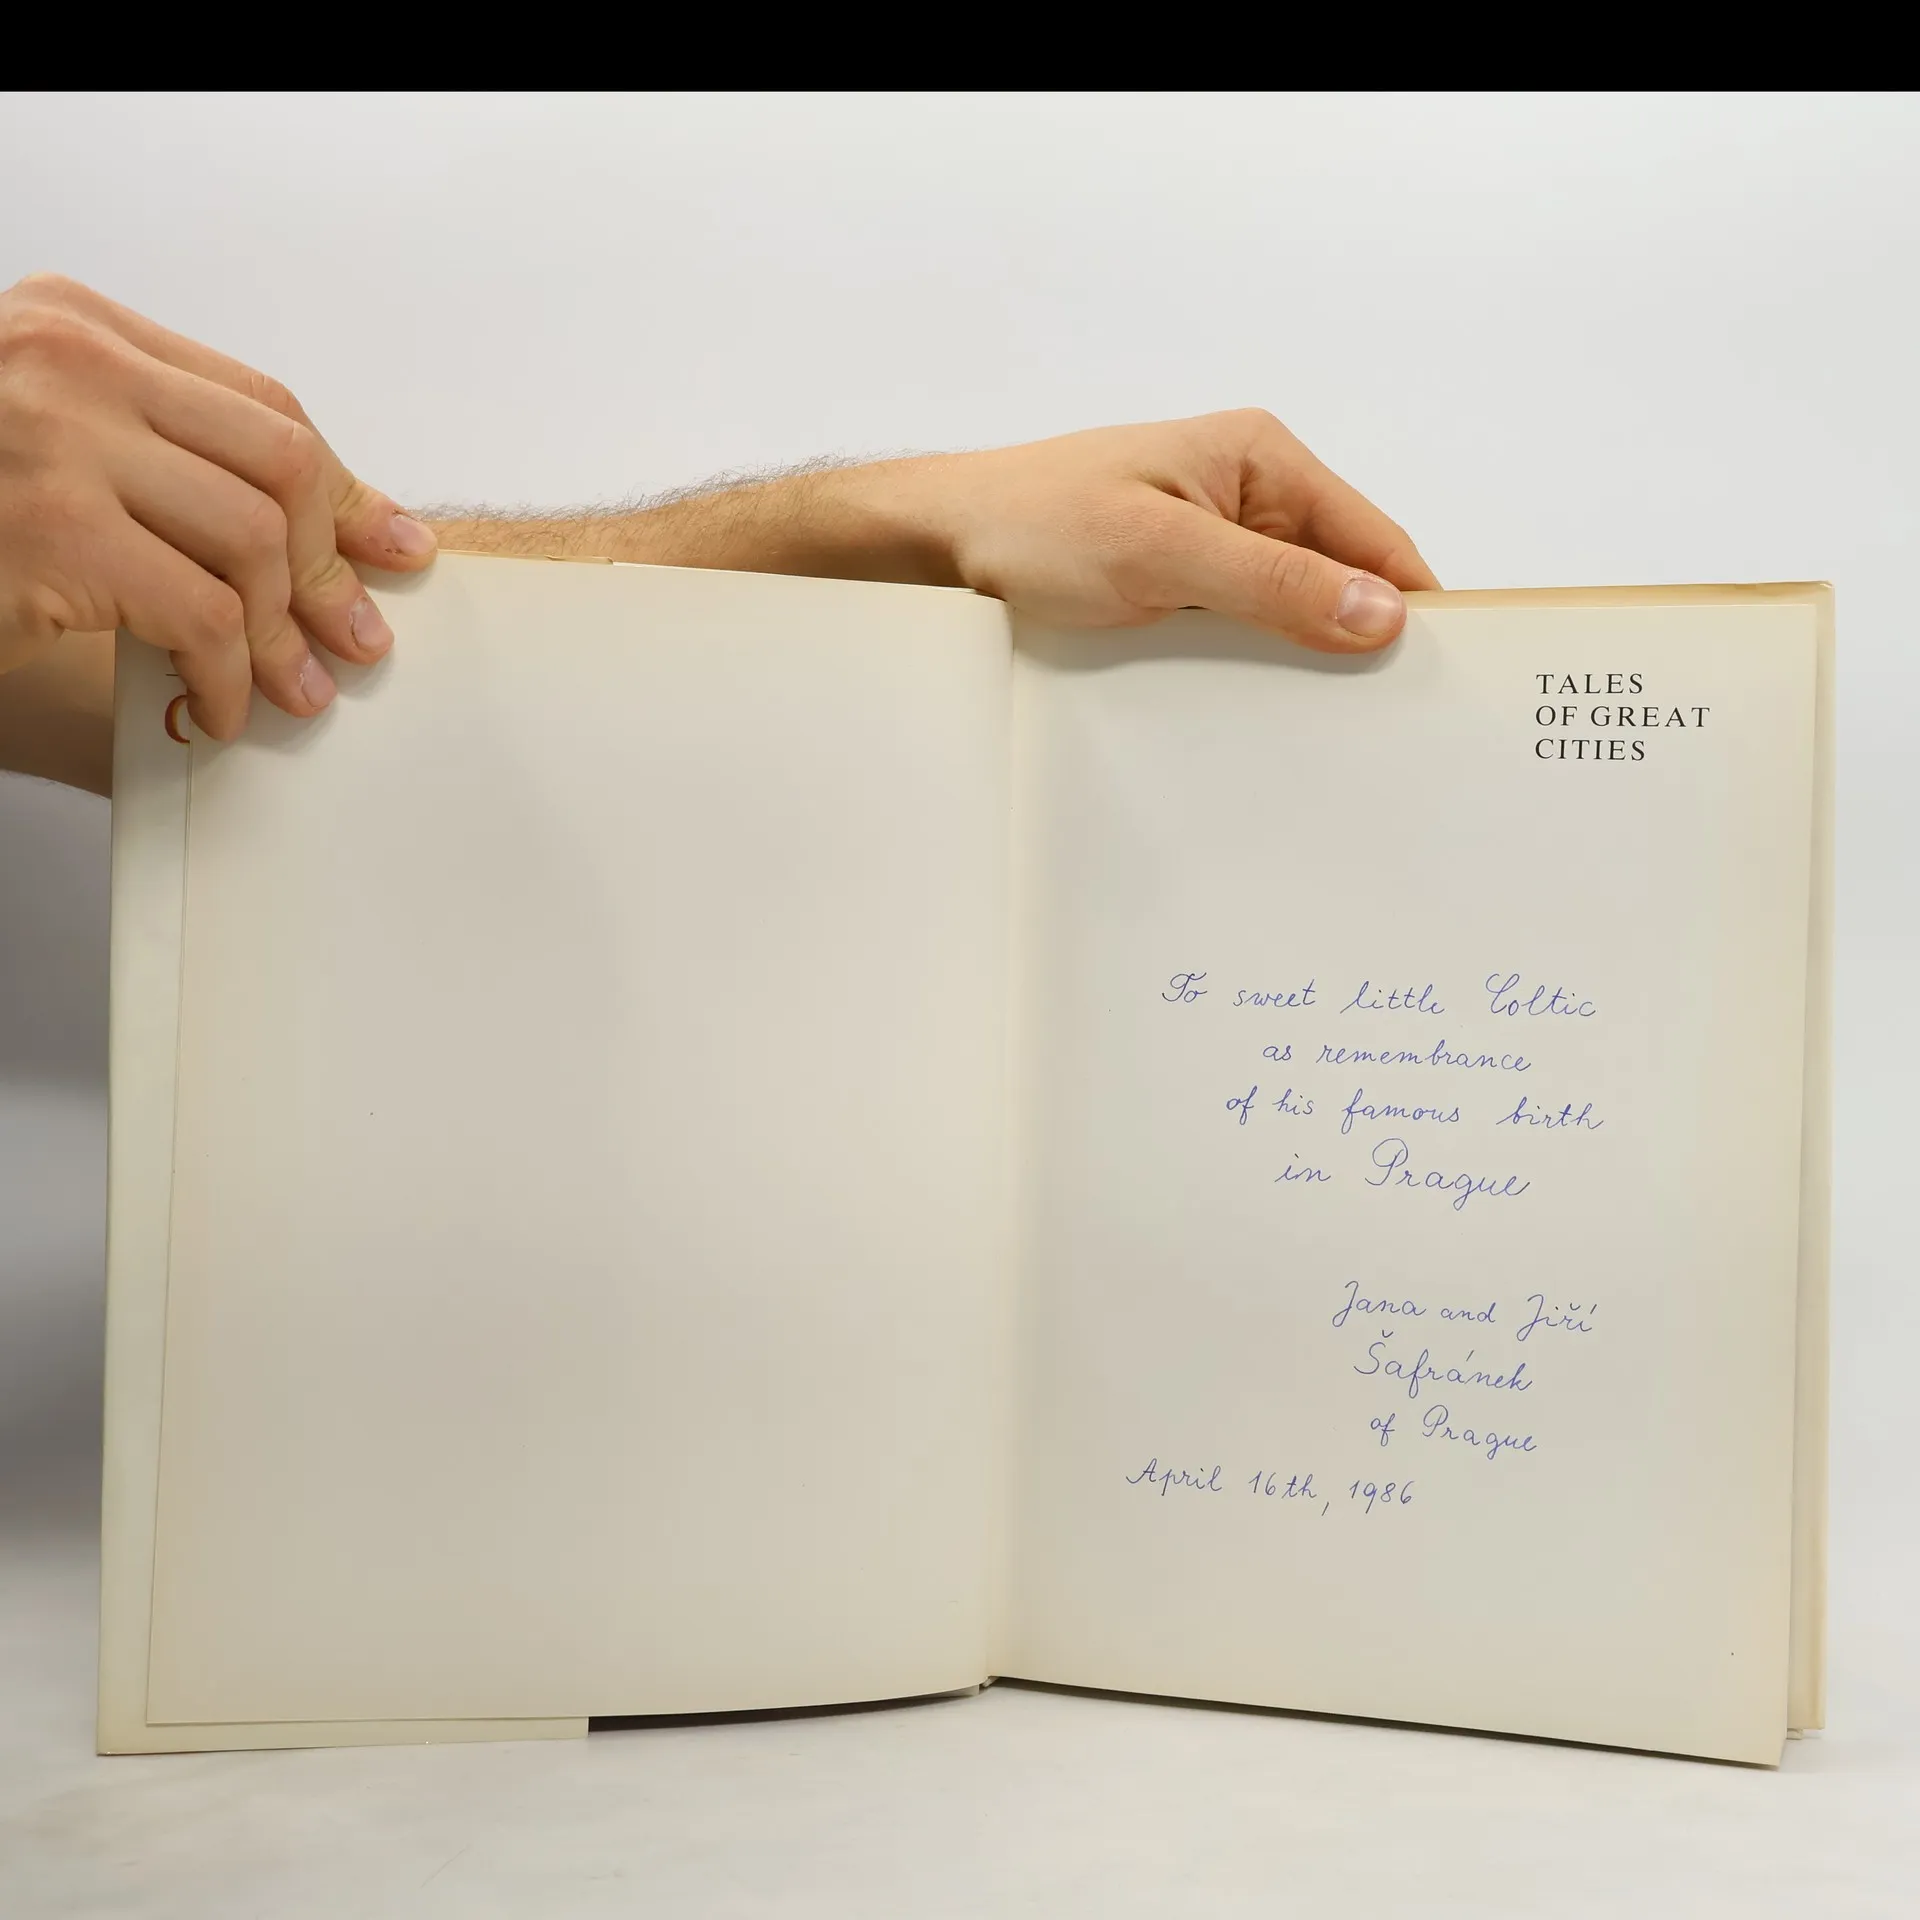 TALES
OF GREAT
CITIES
To sweet little Coltic
as remembrance
of his famous birth
in Prague
Jana and Jiří
Šafránek
of Prague
April 16th, 1986